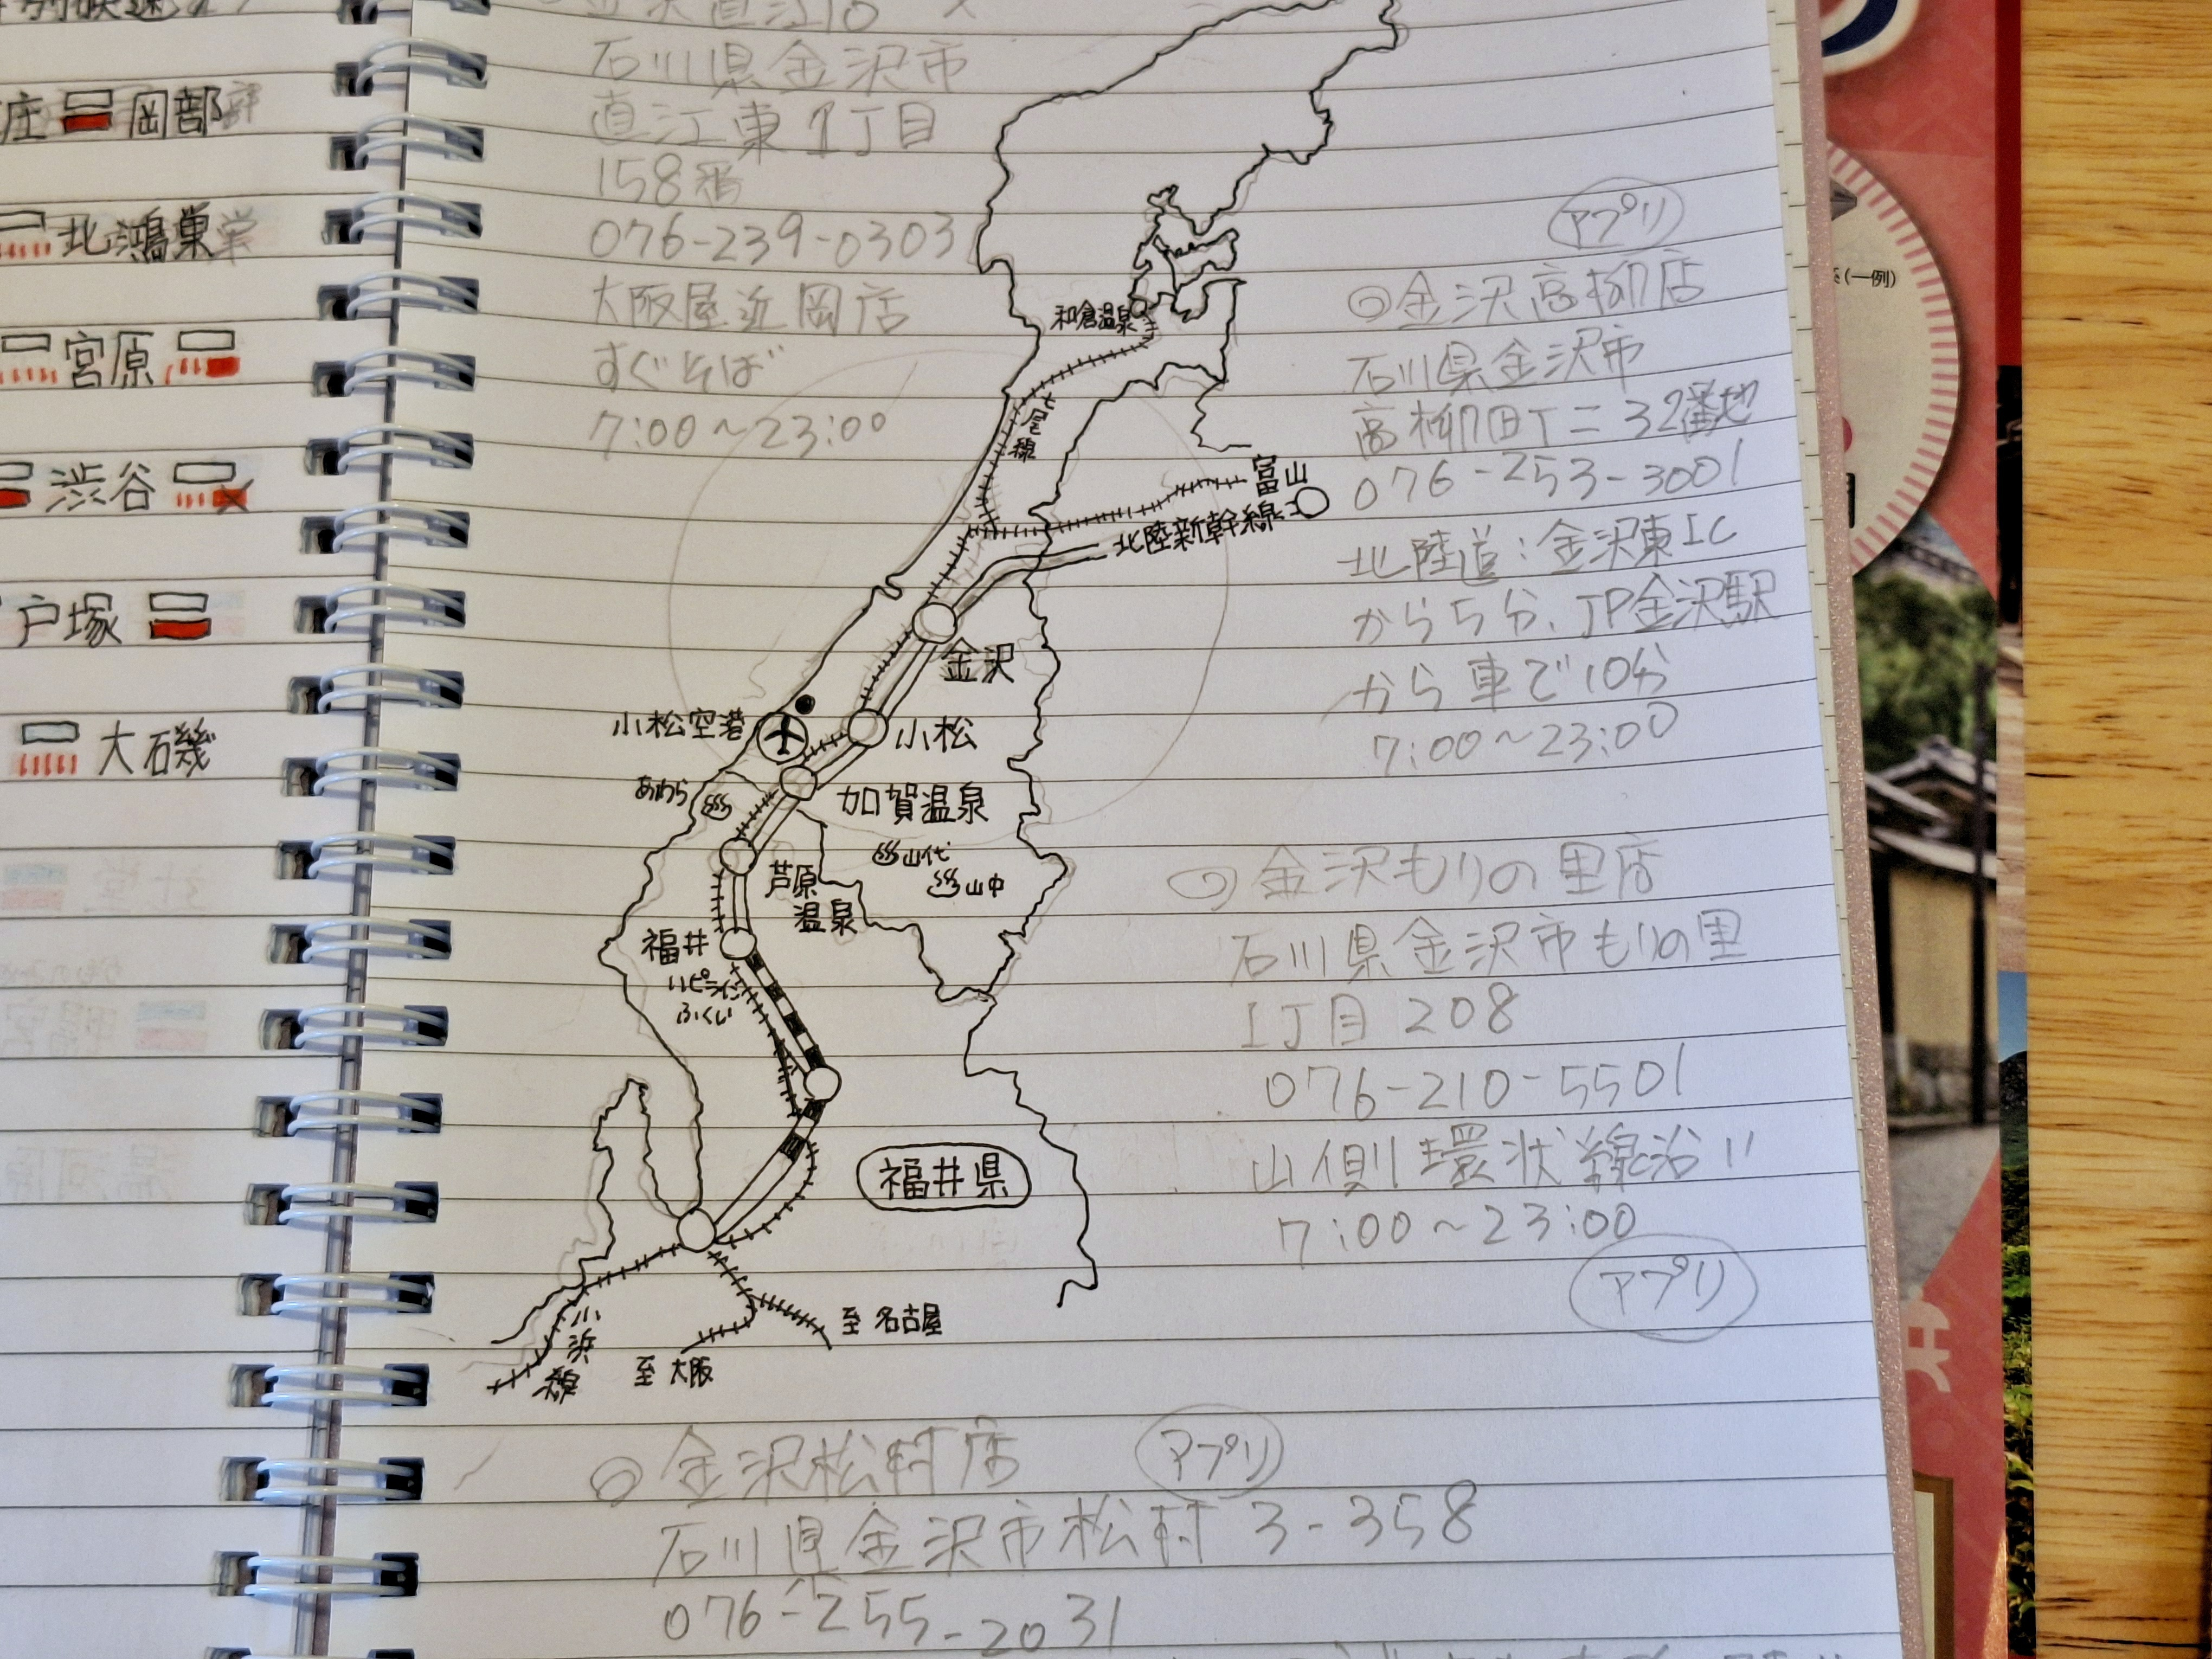 庄 岡部
北鴻巣
宮原
渋谷
戸塚
大磯
石川県金沢市
直江東1丁目
158番
076-239-0303
大阪屋近岡店
すぐそば
7:00～23:00
和倉温泉
七尾線
富山
北陸新幹線
金沢
小松空港
小松
あわら
加賀温泉
山代
山中
芦原
温泉
福井
ハピライン
ふくい
福井県
小浜線
至 名古屋
至 大阪
アプリ
◎金沢高柳店
石川県金沢市
高柳町丁ニ32番地
076-253-3001
北陸道:金沢東IC
から5分、JP金沢駅
から車で10分
7:00～23:00
◎金沢もりの里店
石川県金沢市もりの里
1丁目208
076-210-5501
山側環状線沿い
7:00～23:00
アプリ
◎金沢松村店 アプリ
石川県金沢市松村3-358
076-255-2031
(一例)